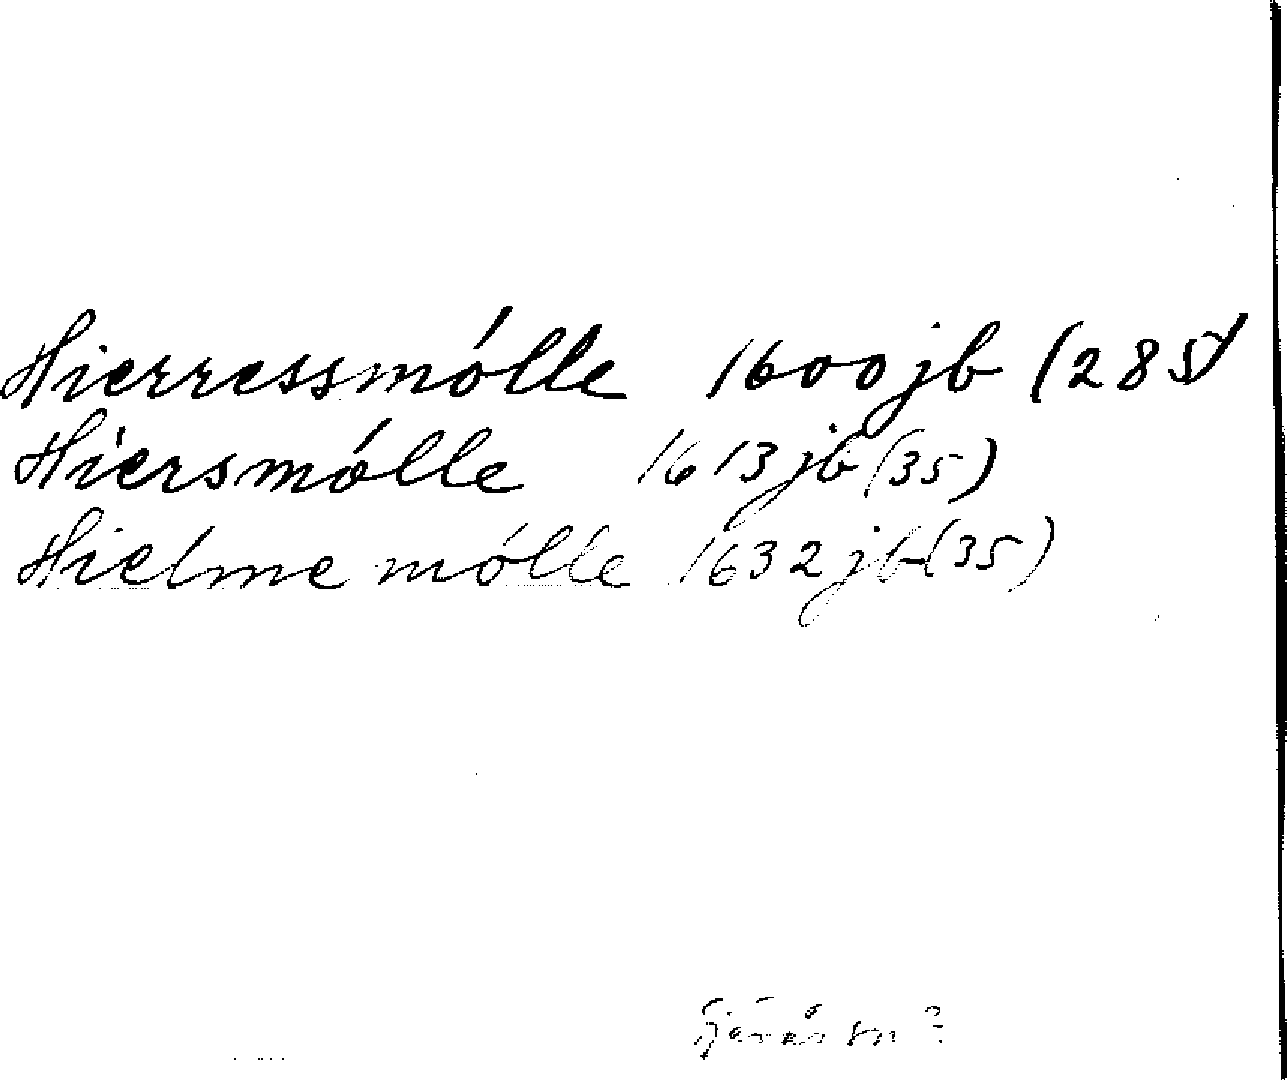 Hierressmólle 1600 jb (285)
Hiersmólle 1613 jb (35)
Hielme mólle 1632 jb (35)
Fjärås sn?